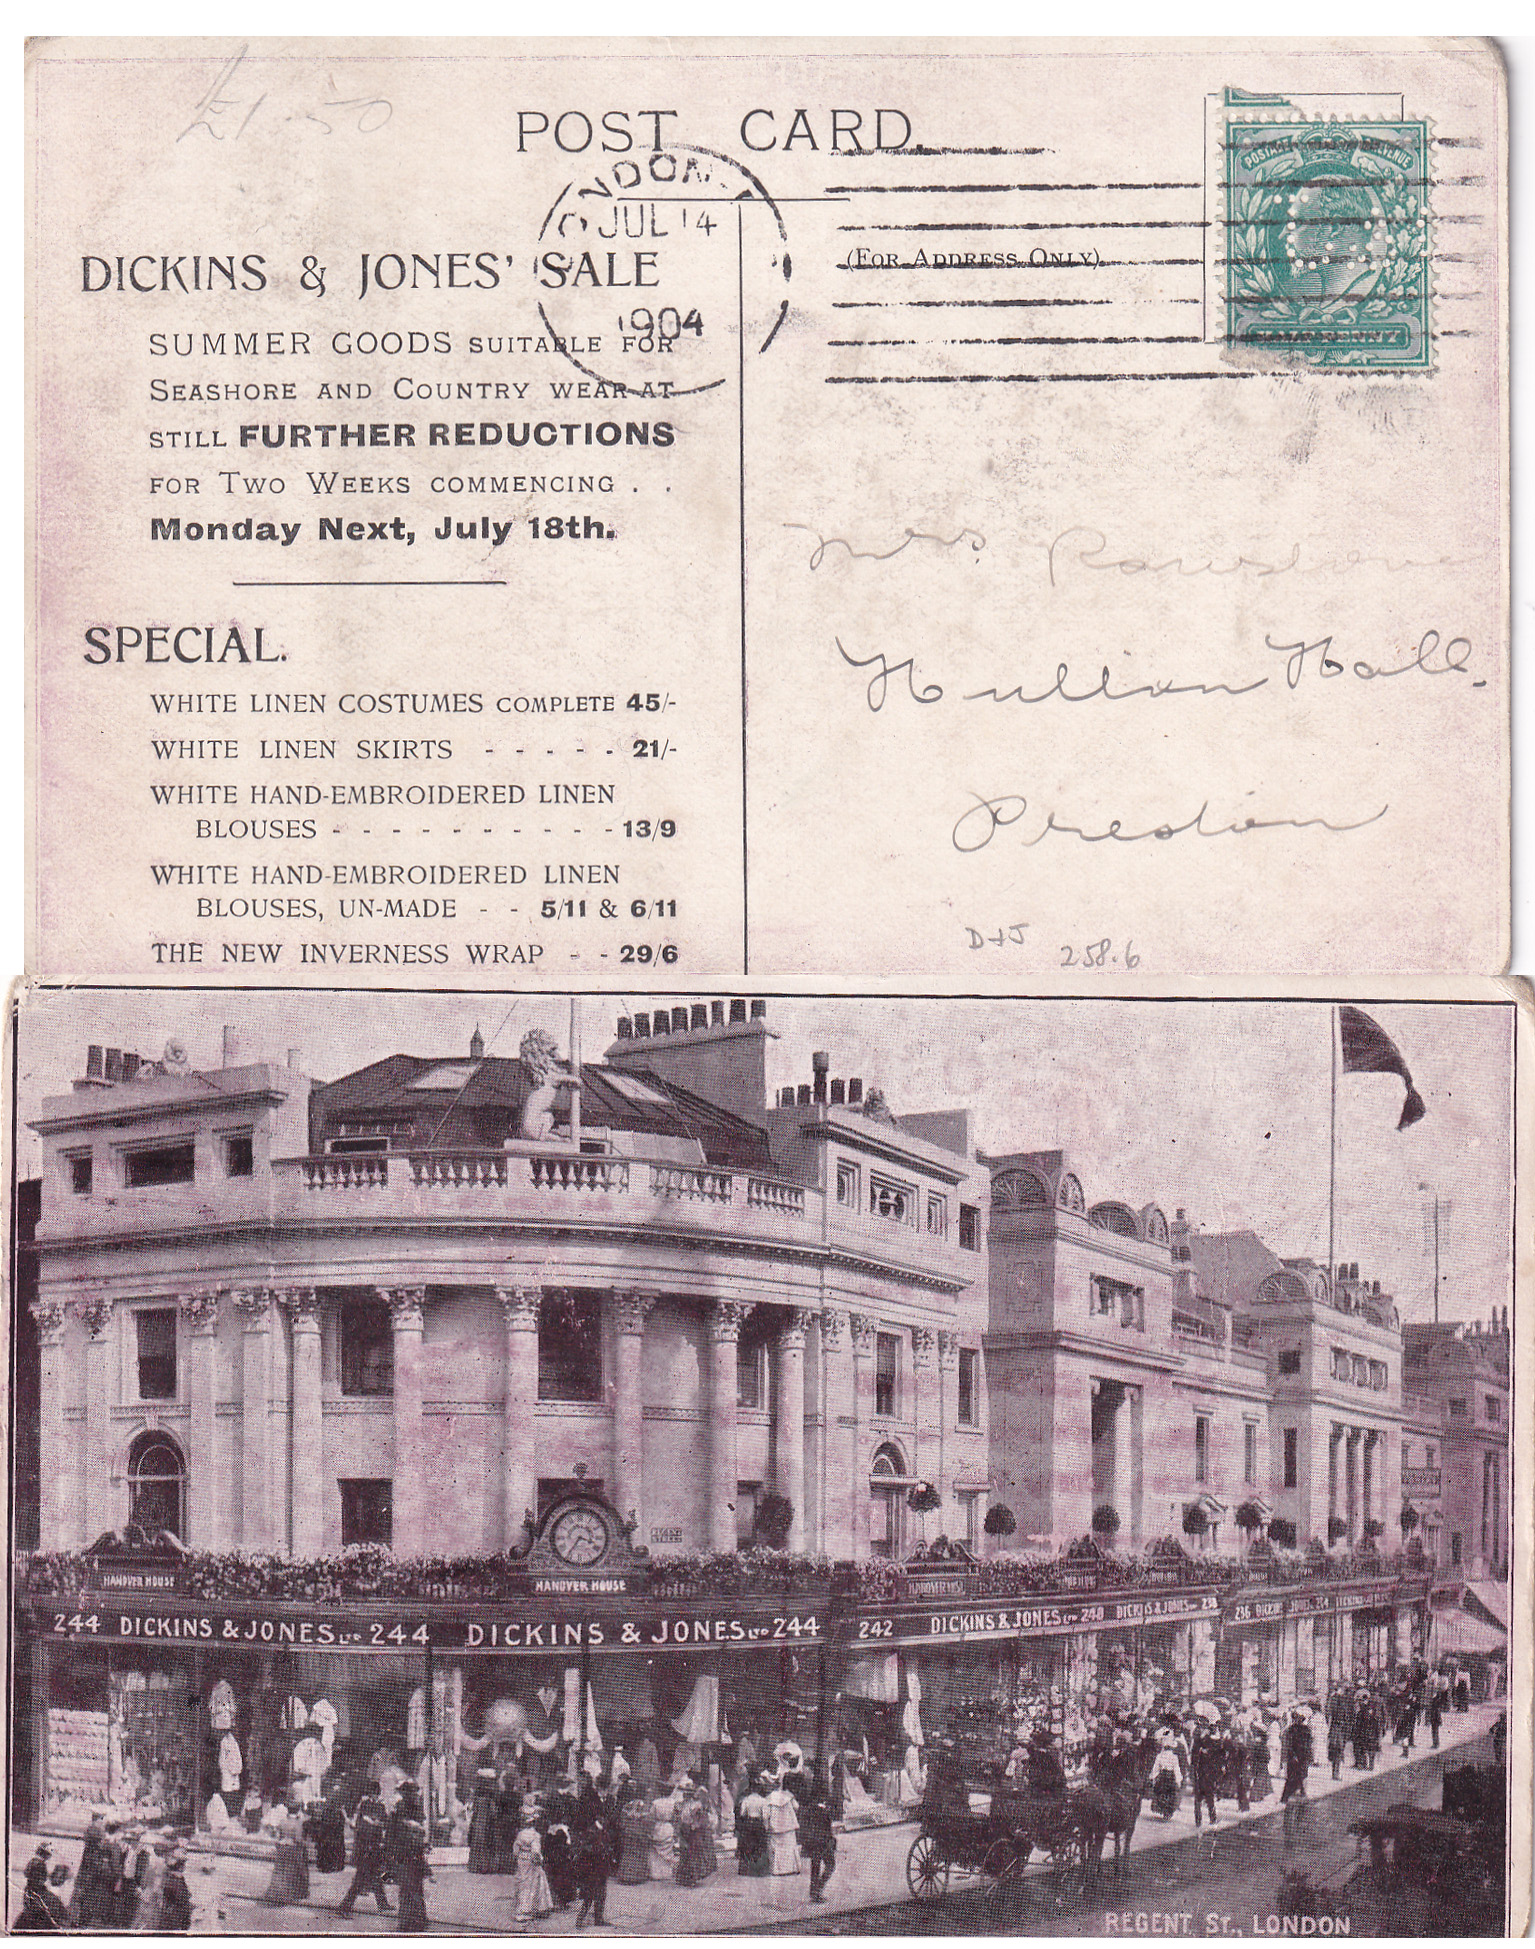 £1.50
POST CARD.
LONDON
JUL 14
1904
POSTAGE & REVENUE
HALFPENNY
(FOR ADDRESS ONLY)
DICKINS & JONES' SALE
SUMMER GOODS SUITABLE FOR
SEASHORE AND COUNTRY WEAR AT
STILL FURTHER REDUCTIONS
FOR TWO WEEKS COMMENCING . .
Monday Next, July 18th.
SPECIAL.
WHITE LINEN COSTUMES COMPLETE 45/-
WHITE LINEN SKIRTS - - - - - 21/-
WHITE HAND-EMBROIDERED LINEN
BLOUSES - - - - - - - - - - - 13/9
WHITE HAND-EMBROIDERED LINEN
BLOUSES, UN-MADE - - 5/11 & 6/11
THE NEW INVERNESS WRAP - - 29/6
Mrs Rawstorne
Hutton Hall.
Preston
D+J 258.6
HANOVER HOUSE HANOVER HOUSE HANOVER HOUSE
244 DICKINS & JONES LTD 244 DICKINS & JONES LTD 244 242 DICKINS & JONES LTD 240 DICKINS & JONES LTD 238 236 DICKINS JONES 234
REGENT ST., LONDON